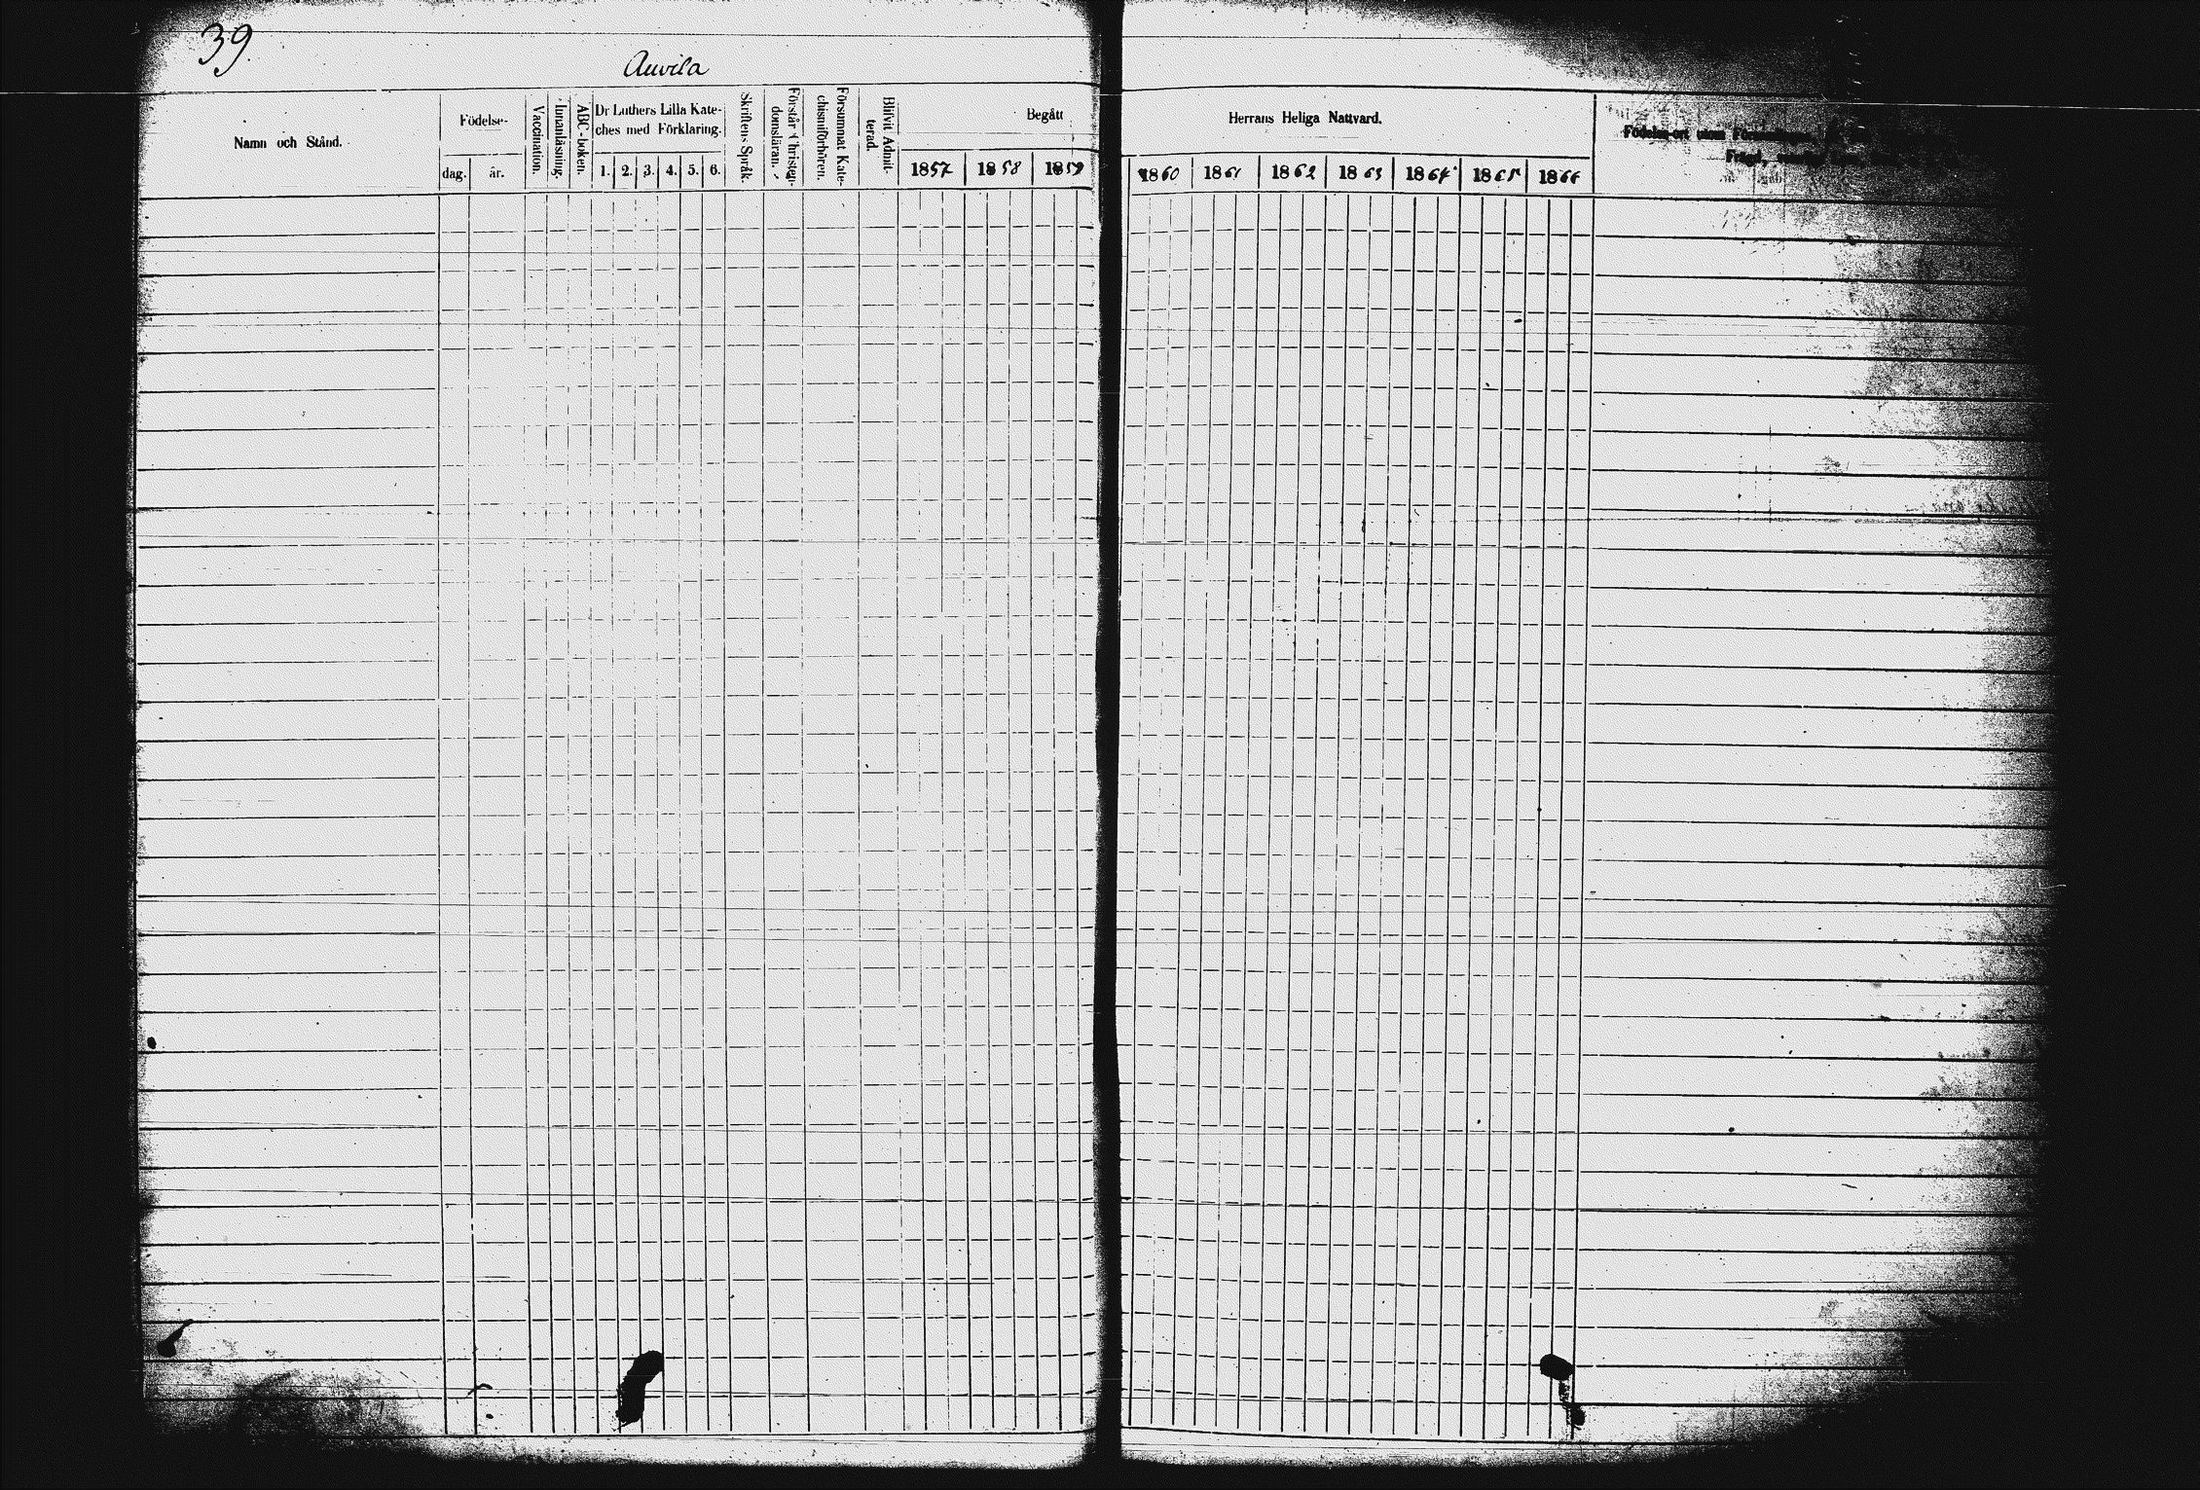 39.
Auvila
Namn och Stånd.
Födelse-
dag. år.
Vaccination.
Innanläsning.
ABC-boken.
Dr Luthers Lilla Kate-
ches med Förklaring.
1. 2. 3. 4. 5. 6.
Skriftens Språk.
Förstår Christen-
domsläran.
Försummat Kate-
chismiförhören.
Blifvit Admit-
terad.
Begått
1857 1858 1859
Herrans Heliga Nattvard.
1860 1861 1862 1863 1864 1865 1866
Födelse-ort utom
Frägd,